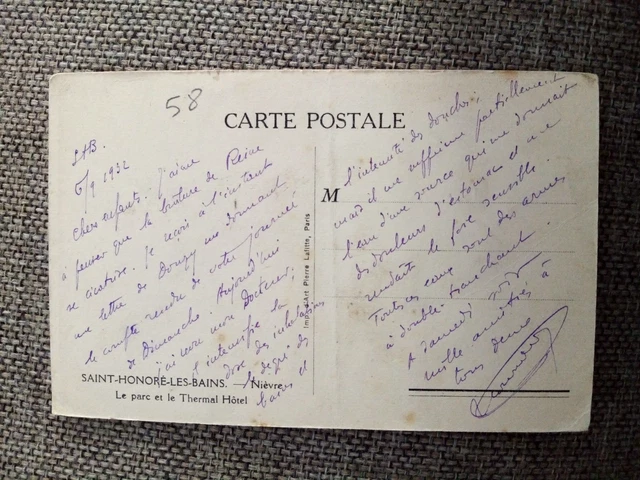 58
CARTE POSTALE
StHB.
6/9 1932
Chers enfants. J'aime
à penser que la brûlure de Reine
se cicatrise. Je reçois à l'instant
une lettre de Douzy me donnant
le compte rendu de votre journée
de Dimanche. Aujourd'hui
j'ai revu mon Docteur,
il intensifie la
dose des inhalations
le degré des
bains et
l'intensité des douches,
mais il me supprime partiellement
l'eau d'une source qui me donnait
des douleurs d'estomac et me
rendait le foie sensible.
Toutes ces eaux sont des armes
à double tranchant.
A samedi soir
mille amitiés à
tous deux
M
Imp. d'Art Pierre Lafitte, Paris
SAINT-HONORÉ-LES-BAINS. — Nièvre
Le parc et le Thermal Hôtel